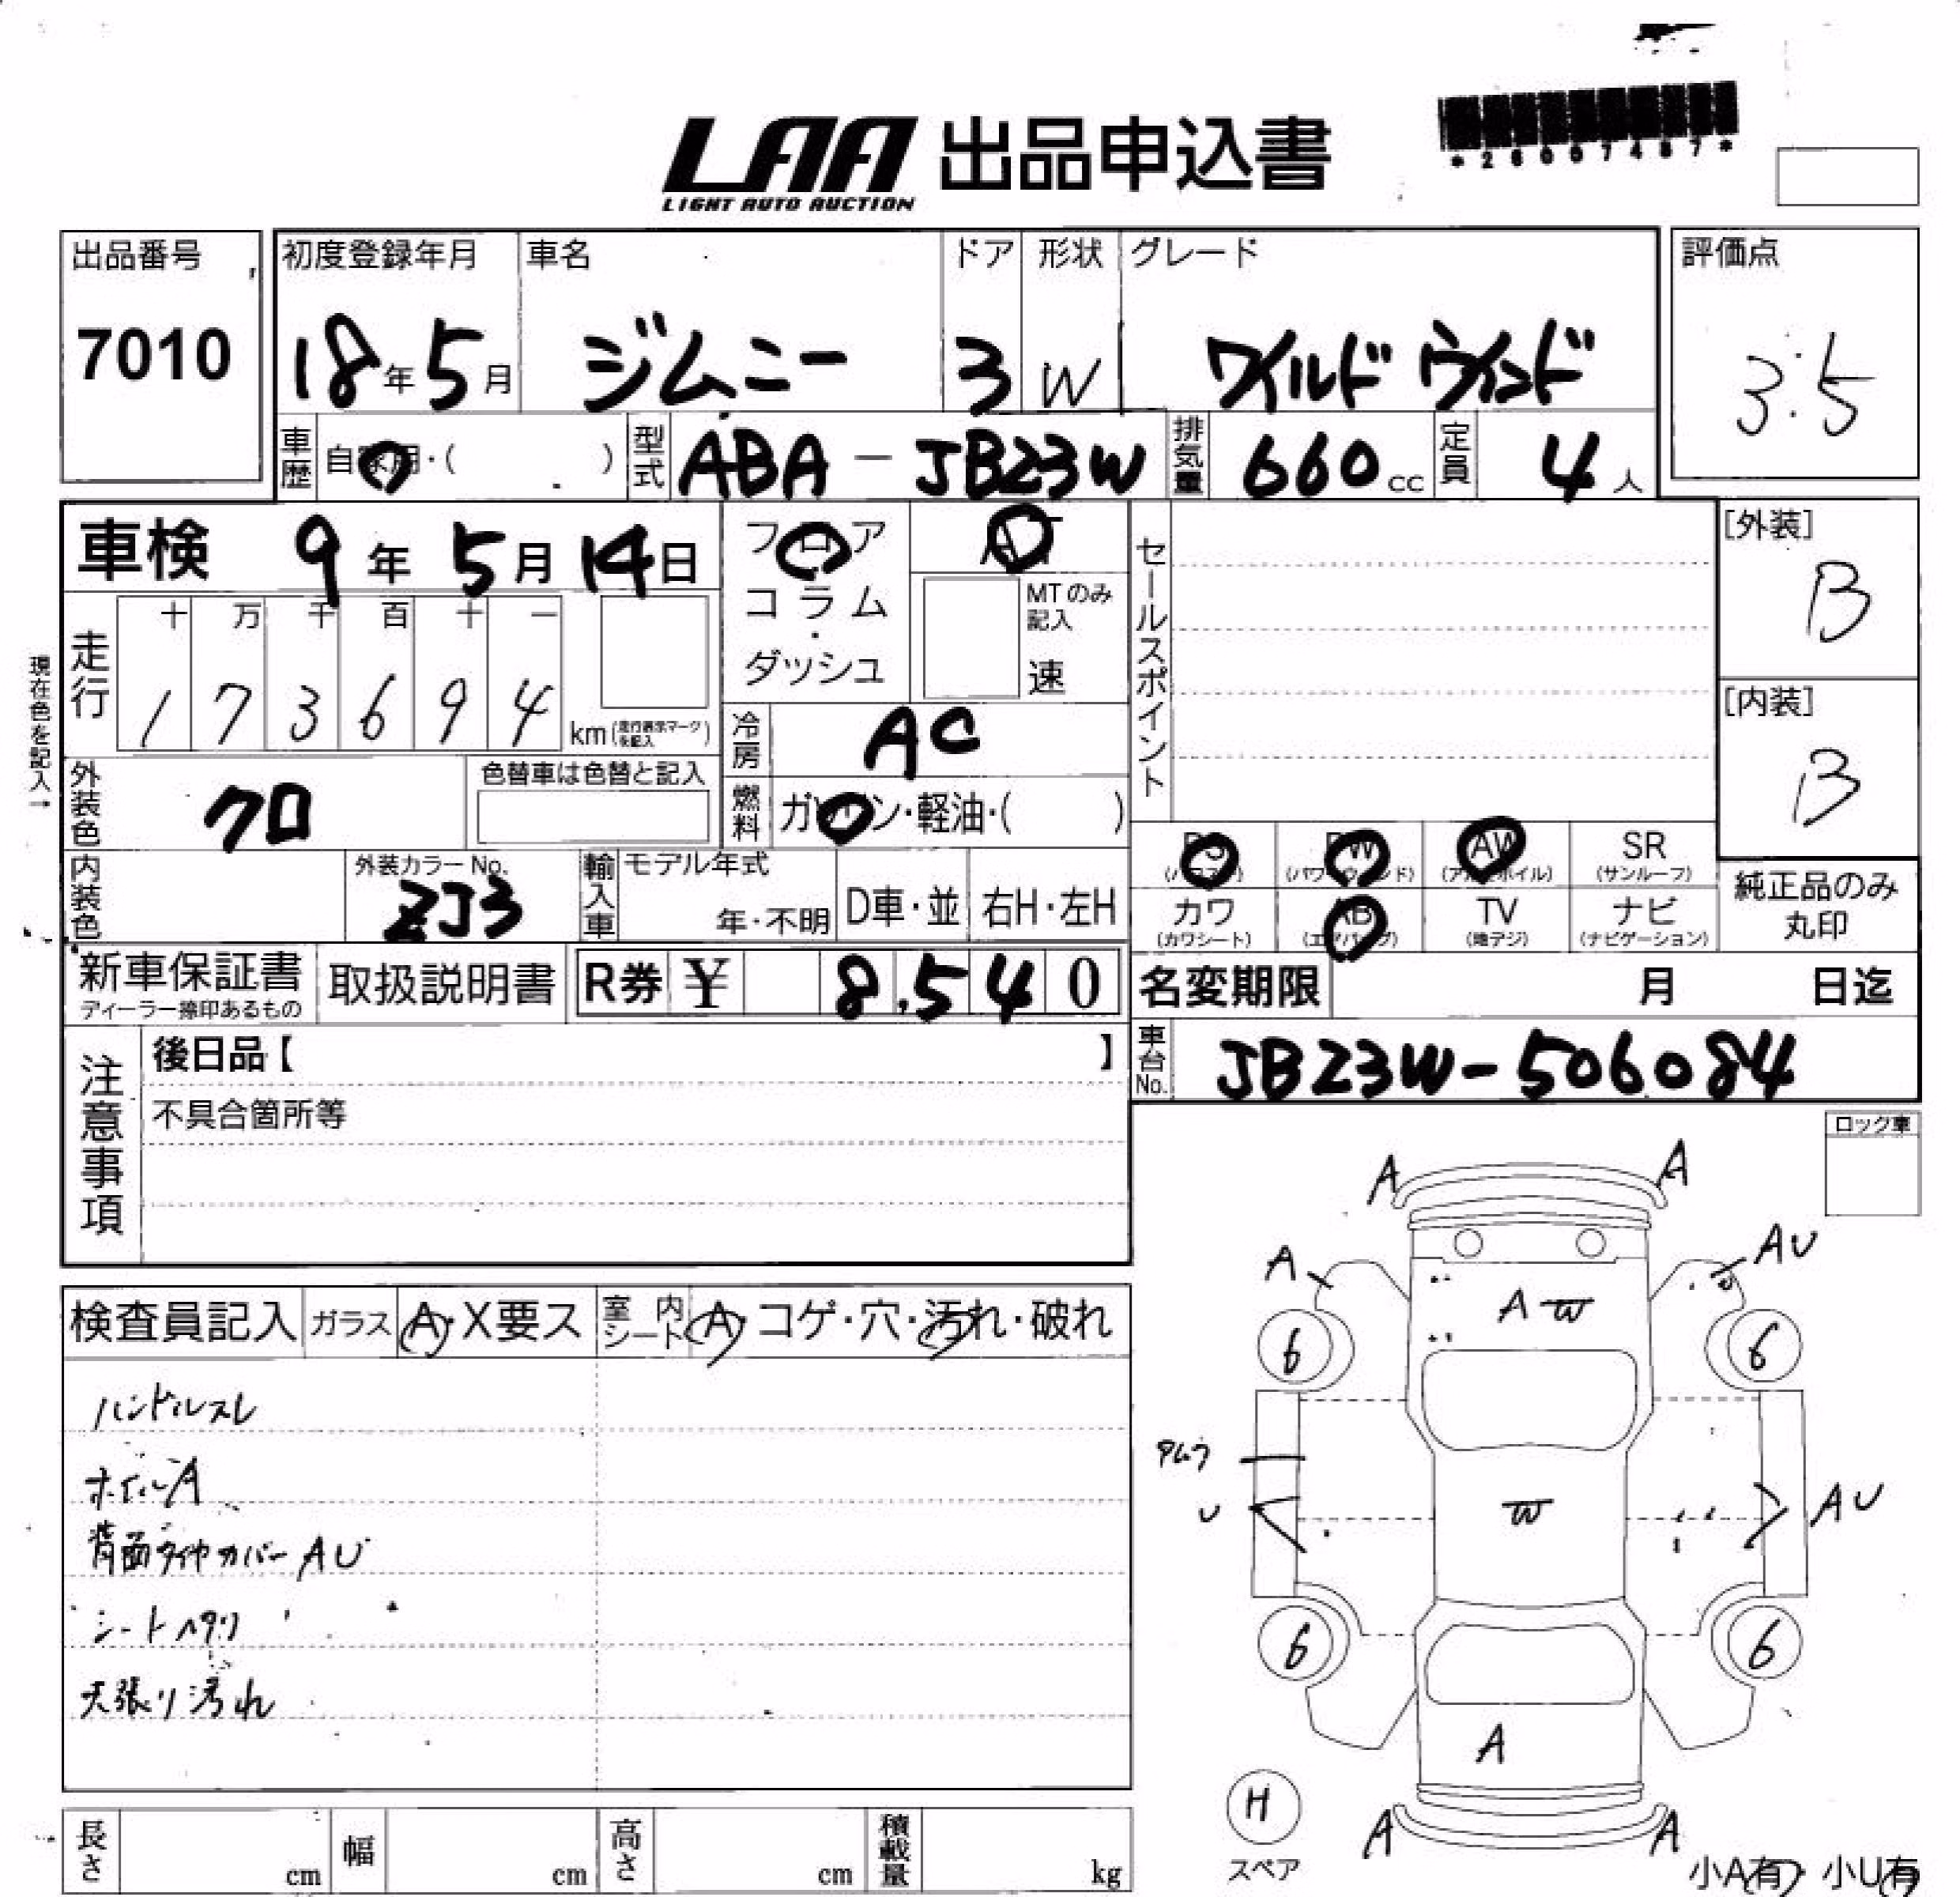 LAA 出品申込書
LIGHT AUTO AUCTION
出品番号 初度登録年月 車名 ドア 形状 グレード 評価点
7010 18年5月 ジムニー 3 W ワイルドウインド 3.5
車歴 自家用・( ) 型式 ABA-JB23W 排気量 660cc 定員 4人
車検 9年5月14日 フロア AT セールスポイント [外装]
コラム・ MTのみ記入 B
ダッシュ 速
現在色を記入→
走行 十 万 千 百 十 一
1 7 3 6 9 4 km(走行表示マークを記入) [内装]
冷房 AC B
外装色 クロ 色替車は色替と記入 燃料 ガソリン・軽油・( )
PS PW AW SR
(パワステ) (パワーウィンド) (アルミホイル) (サンルーフ)
内装色 外装カラーNo. ZJ3 輸入車 モデル年式 年・不明 D車・並 右H・左H
カワ AB TV ナビ 純正品のみ
(カワシート) (エアバッグ) (地デジ) (ナビゲーション) 丸印
新車保証書 取扱説明書 R券 ¥ 8,540 名変期限 月 日迄
ディーラー捺印あるもの
注意事項 後日品【 】 車台No. JB23W-506084
不具合箇所等
ロック車
A A
A AU
A W
6 6
検査員記入 ガラス A・X要ス 室内シート A・コゲ・穴・汚れ・破れ
ハンドルスレ
ホイールA
背面タイヤカバーAU
シートヘタリ
天張り汚れ
タムラ
U W AU
6 6
A
H
スペア
A A
小A有 小U有
長さ cm 幅 cm 高さ cm 積載量 kg